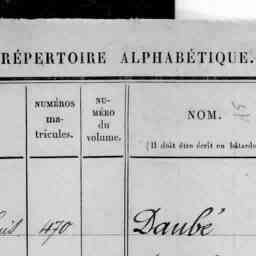 RÉPERTOIRE ALPHABÉTIQUE.
NUMÉROS
ma-
tricules.
NU-
MÉRO
du
volume.
NOM.
(Il doit être écrit en bâtard
470
Daubé